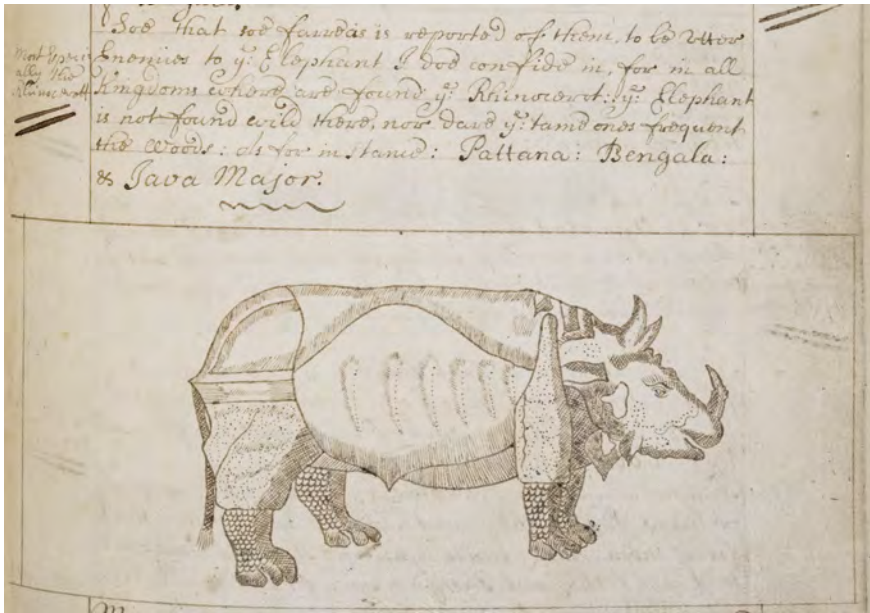 Soe that soe farre as is reported of them, to be utter
Enemies to yᵉ: Elephant I doe confide in, for in all
Kingdoms where are found yᵉ: Rhinocerot: yᵉ: Elephant
is not found wild there, nor dare yᵉ: tame ones frequent
the woods: as for instance: Pattana: Bengala:
& Java Major.
Most Especi
ally the